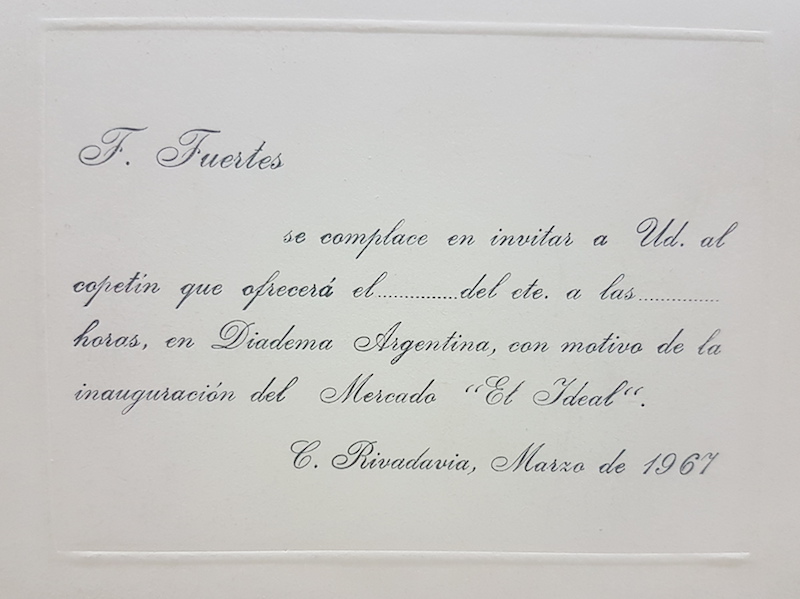 F. Fuertes
se complace en invitar a Ud. al
copetín que ofrecerá el..............del cte. a las..............
horas, en Diadema Argentina, con motivo de la
inauguración del Mercado “El Ideal“.
C. Rivadavia, Marzo de 1967